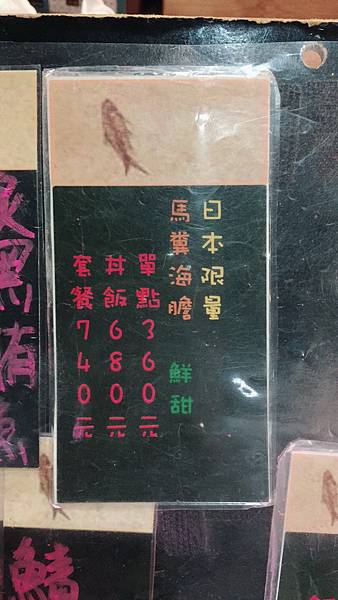 日本限量
馬糞海膽 鮮甜
單點360元
丼飯680元
套餐740元
鯖